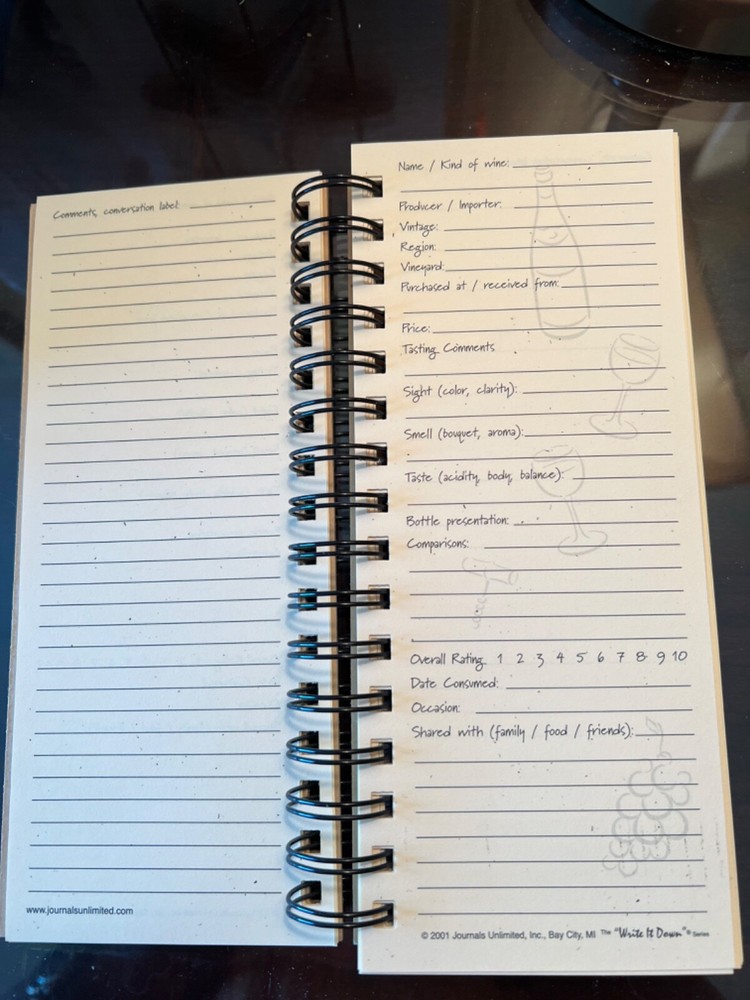 Comments, conversation label:
www.journalsunlimited.com
Name / Kind of wine:
Producer / Importer:
Vintage:
Region:
Vineyard:
Purchased at / received from:
Price:
Tasting Comments
Sight (color, clarity):
Smell (bouquet, aroma):
Taste (acidity, body, balance):
Bottle presentation:
Comparisons:
Overall Rating 1 2 3 4 5 6 7 8 9 10
Date Consumed:
Occasion:
Shared with (family / food / friends):
© 2001 Journals Unlimited, Inc., Bay City, MI The "Write It Down"® Series